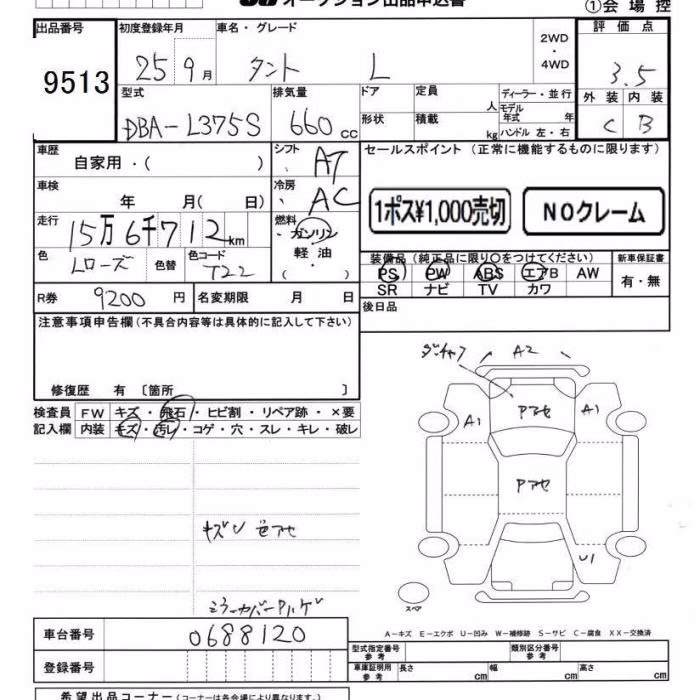 オークション出品申込書
①会場控
出品番号
9513
初度登録年月
25 9月
車名・グレード
タント L
2WD
・
4WD
評価点
3.5
型式
DBA-L375S
排気量
660cc
ドア
定員
人
ディーラー・並行
モデル
年式 年
形状
積載
kg
ハンドル 左・右
外装 内装
C B
車歴
自家用・( )
シフト
AT
セールスポイント(正常に機能するものに限ります)
車検
年 月( 日)
冷房
AC
1ポス¥1,000売切
NOクレーム
走行
15万6千712km
燃料
ガソリン
軽油
・( )
色
Lローズ
色替
色コード
T22
装備品(純正品に限り○をつけてください)
PS PW ABS エアB AW
SR ナビ TV カワ
新車保証書
有・無
R券 9200円
名変期限 月 日
後日品
注意事項申告欄(不具合内容等は具体的に記入して下さい)
修復歴 有 〔箇所 〕
検査員
記入欄
FW キズ・飛石・ヒビ割・リペア跡・×要
内装 キズ・汚レ・コゲ・穴・スレ・キレ・破レ
A2
A1
Pアセ
A1
Pアセ
U1
スペア
キズU 色アセ
ミラーカバーPハゲ
A-キズ E-エクボ U-凹み W-補修跡 S-サビ C-腐食 XX-交換済
車台番号
0688120
登録番号
型式指定番号
参考
類別区分番号
参考
車庫証明用
参考
長さ cm
幅 cm
高さ cm
希望出品コーナー(コーナーは各会場により異なります。)